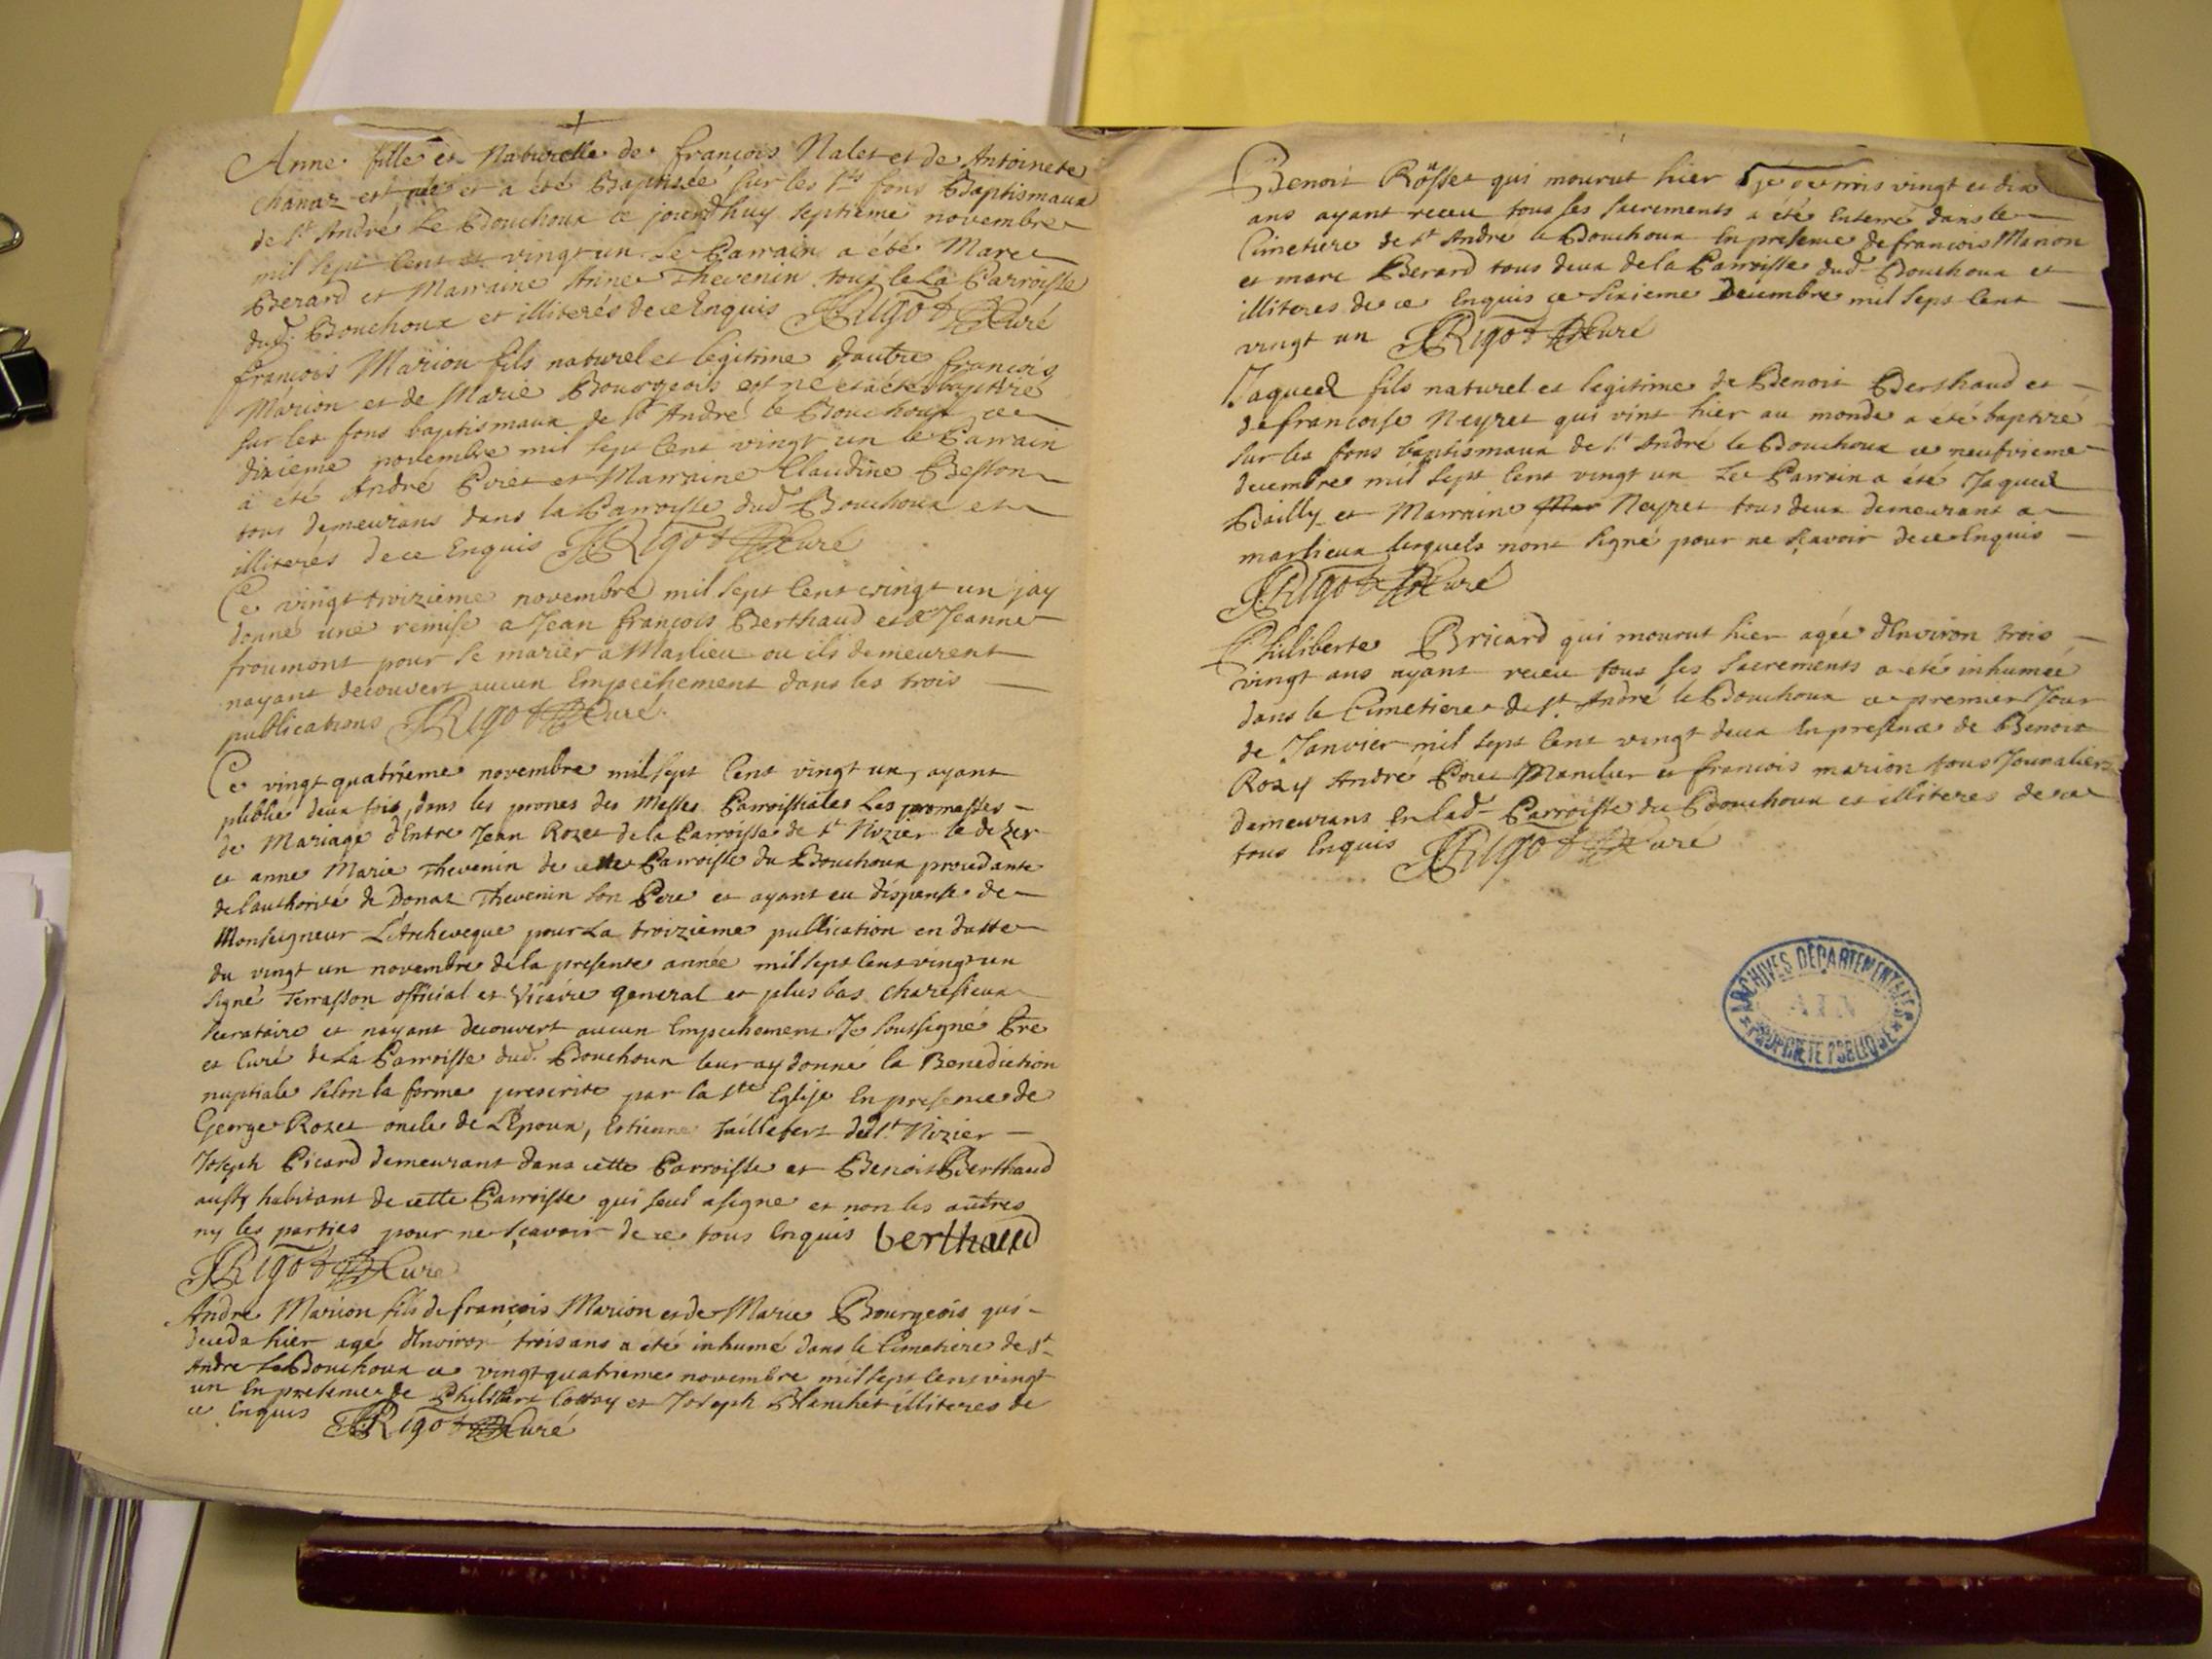 Anne fille et Naturelle de françois Nalet et de Antoinete
chanaz est née et a été Baptisée sur les Sts fons Baptismaux
de St André Le Bouchoux ce jourdhuy septieme novembre
mil sept Cent et vingt un Le Parrain a été Marc
Berard et Marraine Anne Thevenin tous de La Parroisse
dud. Bouchoux et illiterés de ce Enquis JRigot Curé
françois Marion fils naturel et legitime dautre françois
Marion et de Marie Bourgeois est né et a été baptizé
sur les fons baptismaux de St André le Bouchoux ce
dixieme novembre mil sept Cent vingt un le Parrain
a été André Poiet et Marraine Claudine Besson
tous demeurans dans la Parroisse dud Bouchoux et
illiterés de ce Enquis JRigot Curé
Ce vingt troizieme novembre mil sept Cent vingt un jay
donné une remise a Jean françois Berthaud et a Jeanne
froumont pour se marier a Marlieu ou ils demeurent
nayant decouvert aucun Empechement dans les trois
publications JRigot Curé
Ce vingt quatrieme novembre mil sept Cent vingt un, ayant
publié deux fois, dans les prones des Messes Parroissiales Les promesses
de Mariage d'Entre Jean Rozet de la Parroisse de St Nizier le dezer
et anne Marie Thevenin de cette Parroisse du Bouchoux procedante
de l'authorité de Donat Thevenin son Pere et ayant eu dispense de
Monseigneur L'Archeveque pour La troizieme publication en datte
du vingt un novembre de la presente année mil sept Cent vingt un
signé Terrasson official et Vicaire general et plus bas charesieux
secretaire et nayant decouvert aucun Empechement Je soussigné Pre
et Curé de La Parroisse dud. Bouchoux leur ay donné la Benediction
nuptiale selon la forme prescrite par la Ste Eglise En presence de
George Rozet oncle de L'Epoux, Estienne taillefert de St. Nizier
Joseph Picard demeurant dans cette Parroisse et Benoit Berthaud
aussy habitant de cette Parroisse qui seul a signé et non les autres
ny les parties pour ne sçavoir de ce tous Enquis berthaud
JRigot Curé
André Marion fils de françois Marion et de Marie Bourgeois qui
deceda hier agé d'Environ trois ans a été inhumé dans le Cimetiere de St
Andre Le Bouchoux ce vingt quatrieme novembre mil sept Cent vingt
un En presence de Philibert Cottay et Joseph Blanchet illiteres de
ce Enquis JRigot Curé
Benoit Rousset qui mourut hier vingt et dix
ans ayant receu tous ses sacrements a été Enterré dans le
Cimetiere de St André le Bouchoux En presence de francois Marion
et marc Berard tous deux de la Parroisse dud Bouchoux et
illiteres de ce Enquis ce sixieme Decembre mil sept Cent
vingt un JRigot Curé
Jaques fils naturel et legitime de Benoit Berthaud et
de francoise Neyret qui vint hier au monde a été baptizé
sur les fons baptismaux de St André le Bouchoux ce neufvieme
decembre mil sept Cent vingt un Le Parrain a été Jaques
Bailly et Marraine Neyret tous deux demeurant a
marlieux lesquels nont signé pour ne sçavoir de ce Enquis
JRigot Curé
Philiberte Bricard qui mourut hier agée d'Environ trois
vingt ans ayant receu tous ses Sacrements a été inhumée
dans le Cimetiere de St. André le Bouchoux ce premier Jour
de Janvier mil sept Cent vingt deux En presence de Benoit
Rozy André et francois marion tous Journaliers
demeurans En lad Parroisse du Bouchoux et illiteres de ce
tous Enquis JRigot Curé
ARCHIVES DÉPARTEMENTALES
AIN
PROPRIÉTÉ PUBLIQUE